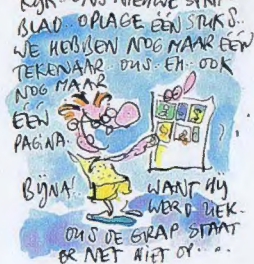 KIJK.. ONS NIEUWE STRIP
BLAD.. OPLAGE ÉÉN STUKS..
WE HEBBEN NOG MAAR ÉÉN
TEKENAAR.. DUS.. EH.. OOK
NOG MAAR
ÉÉN
PAGINA..
BIJNA!
WANT HIJ
WERD ZIEK..
DUS DE GRAP STAAT
ER NET NIET OP...